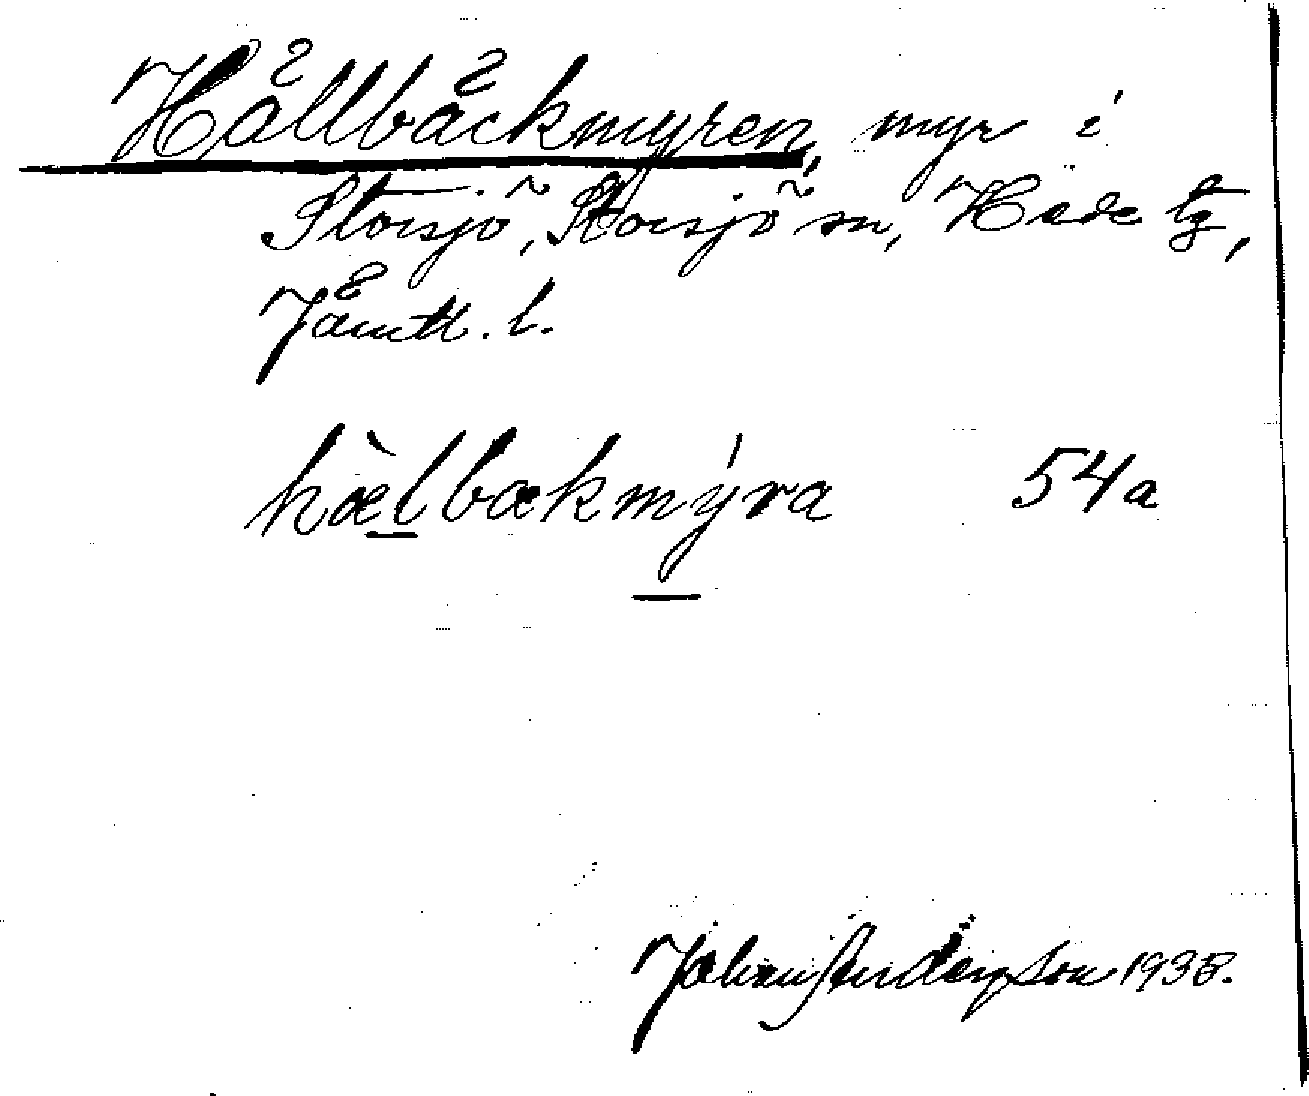 Hällbäckmyren, myr i
Storsjö, Storsjö sn, Hede tg,
Jämtl. l.
hæ̀lbækmýra 54a
Johan Anderson 1938.